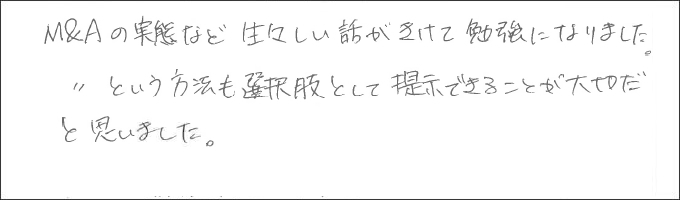 M&Aの実態など 生々しい話がきけて 勉強になりました。
〃 という方法も選択肢として提示できることが大切だ
と思いました。